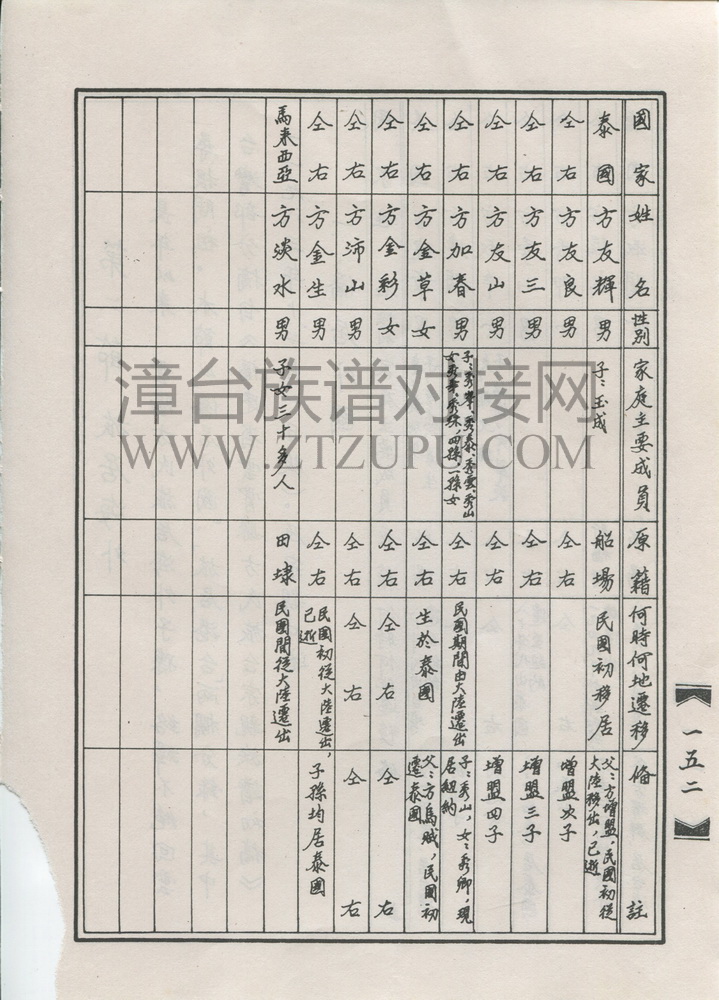 國家 姓名 性別 家庭主要成員 原籍 何時何地遷移 備註
泰國 方友輝 男 子:玉成 船場 民國初移居 父:方增盟,民國初從大陸移出,已逝
仝右 方友良 男 仝右 增盟次子
仝右 方友三 男 仝右 增盟三子
仝右 方友山 男 仝右 增盟四子
仝右 方加春 男 子:秀峯、秀泰、秀雲、秀山 女 四孫,一孫女 仝右 民國期間由大陸遷出 子:秀山,女:秀卿,現居紐約
仝右 方金草 女 仝右 生於泰國 父:方烏賊,民國初遷泰國
仝右 方金彩 女 仝右 仝右 仝右
仝右 方沛山 男 仝右 仝右 仝右
仝右 方金生 男 仝右 民國初從大陸遷出,已逝 子孫均居泰國
馬來西亞 方淡水 男 子女三十多人 田墘 民國間從大陸遷出
一五二
漳台族谱对接网
WWW.ZTZUPU.COM